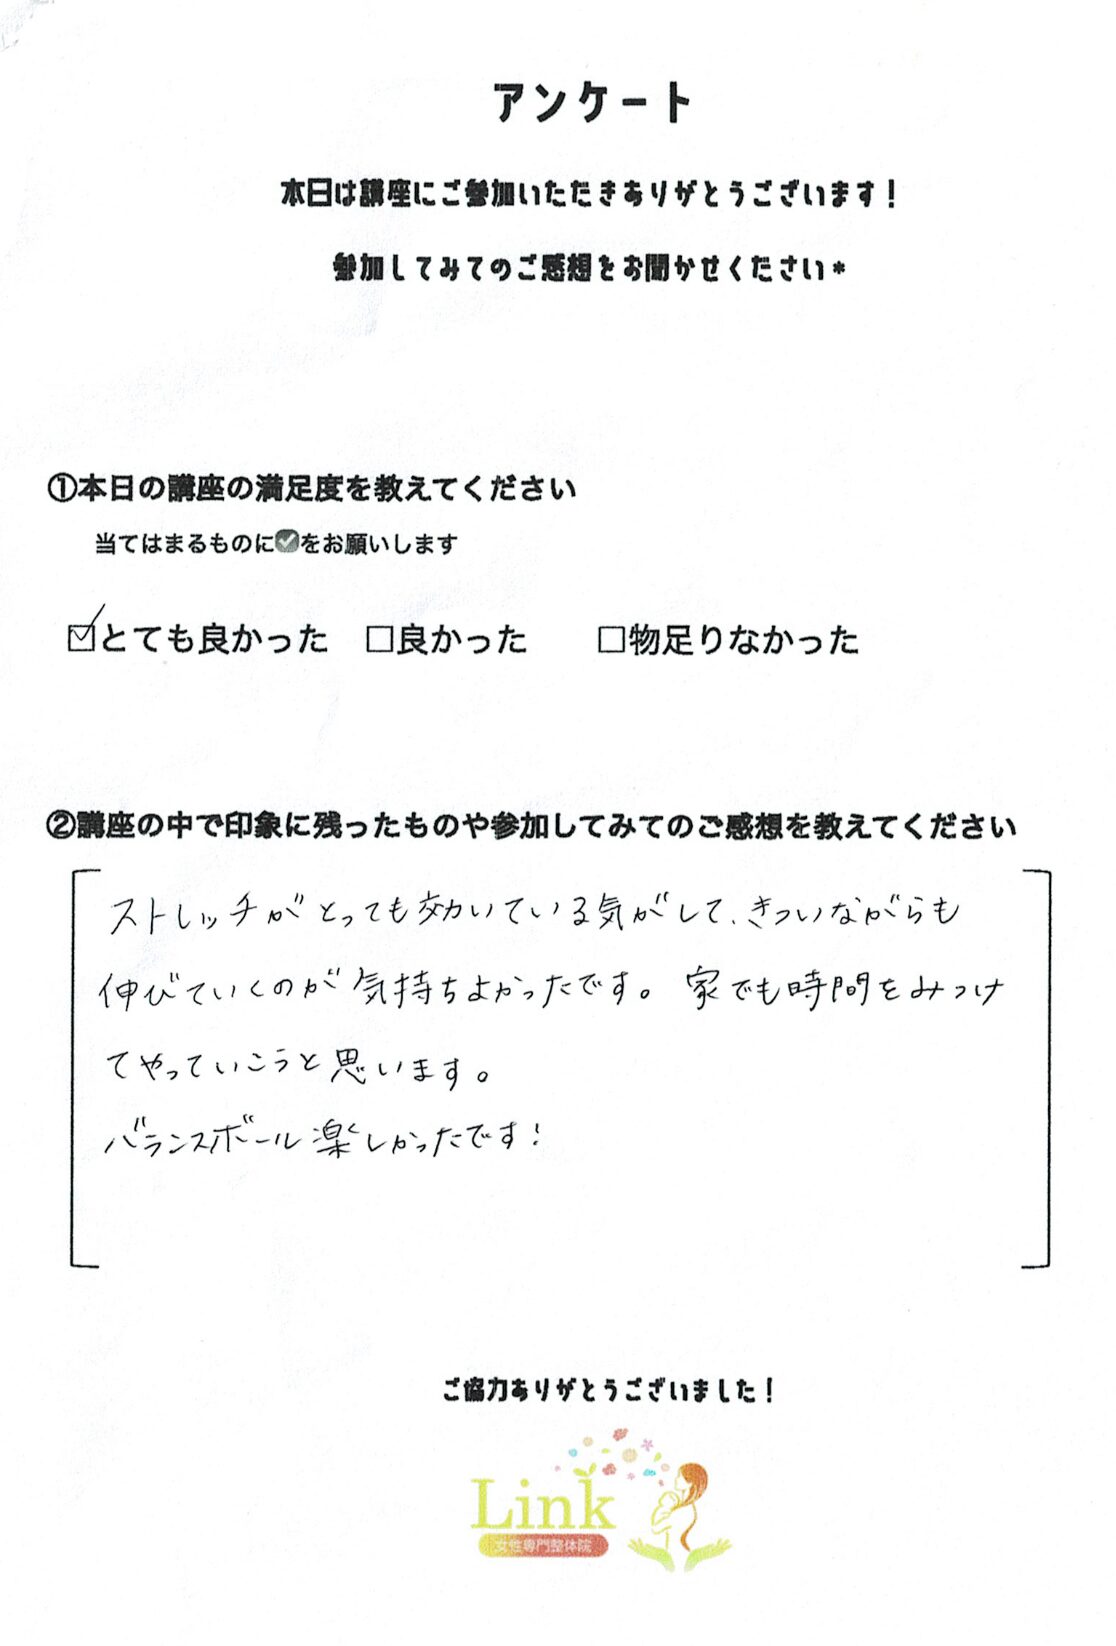 アンケート
本日は講座にご参加いただきありがとうございます！
参加してみてのご感想をお聞かせください*
①本日の講座の満足度を教えてください
当てはまるものに✅をお願いします
☑とても良かった　□良かった　　□物足りなかった
②講座の中で印象に残ったものや参加してみてのご感想を教えてください
ストレッチがとっても効いている気がして、きついながらも
伸びていくのが気持ちよかったです。家でも時間をみつけ
てやっていこうと思います。
バランスボール楽しかったです！
ご協力ありがとうございました！
Link
女性専門整体院